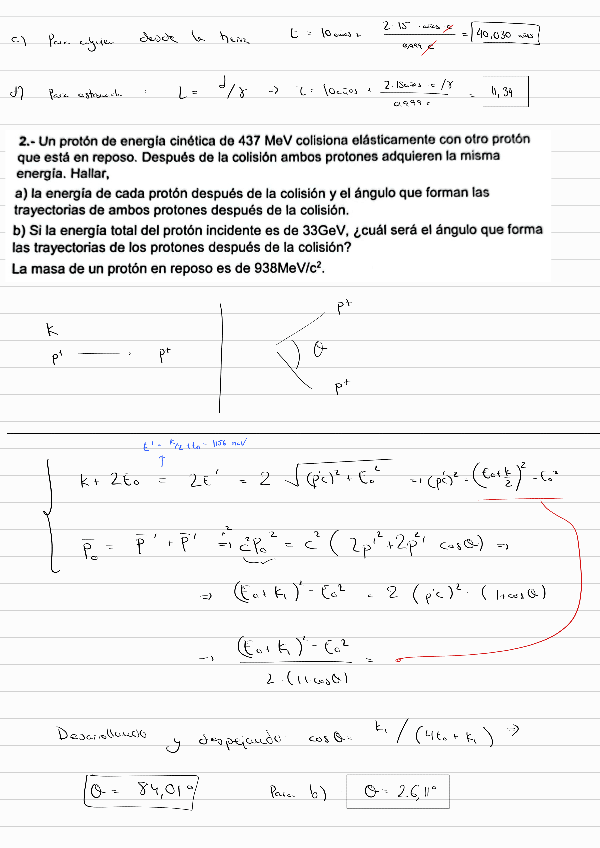 c.) Para cualquier desde la tierra t = 10 años + 2·15 · años c / 0,999 c = 40,030 años
d) Para astronauta : L = d/γ → t = 10 años + 2·15 años c/γ / 0.999 c = 11,34
2.- Un protón de energía cinética de 437 MeV colisiona elásticamente con otro protón
que está en reposo. Después de la colisión ambos protones adquieren la misma
energía. Hallar,
a) la energía de cada protón después de la colisión y el ángulo que forman las
trayectorias de ambos protones después de la colisión.
b) Si la energía total del protón incidente es de 33GeV, ¿cuál será el ángulo que forma
las trayectorias de los protones después de la colisión?
La masa de un protón en reposo es de 938MeV/c².
p+
K
p+ p+ θ
p+
E' = K/2 + E0 = 1156 MeV
K + 2E0 = 2E' = 2 √(p'c)² + E0² ⇒ (p'c)² = (E0 + K/2)² - E0²
p̄0 = p̄' + p̄' ⇒ c²p0² = c² ( 2p'² + 2p'² cosθ ) ⇒
⇒ (E0 + K1)² - E0² = 2 (p'c)² · (1 + cosθ)
→ (E0 + K1)² - E0² / 2 · (1 + cosθ) =
Desarrollando y despejando cosθ = K1 / (4E0 + K1) ⇒
θ = 84,01° Para b) θ = 26,11°